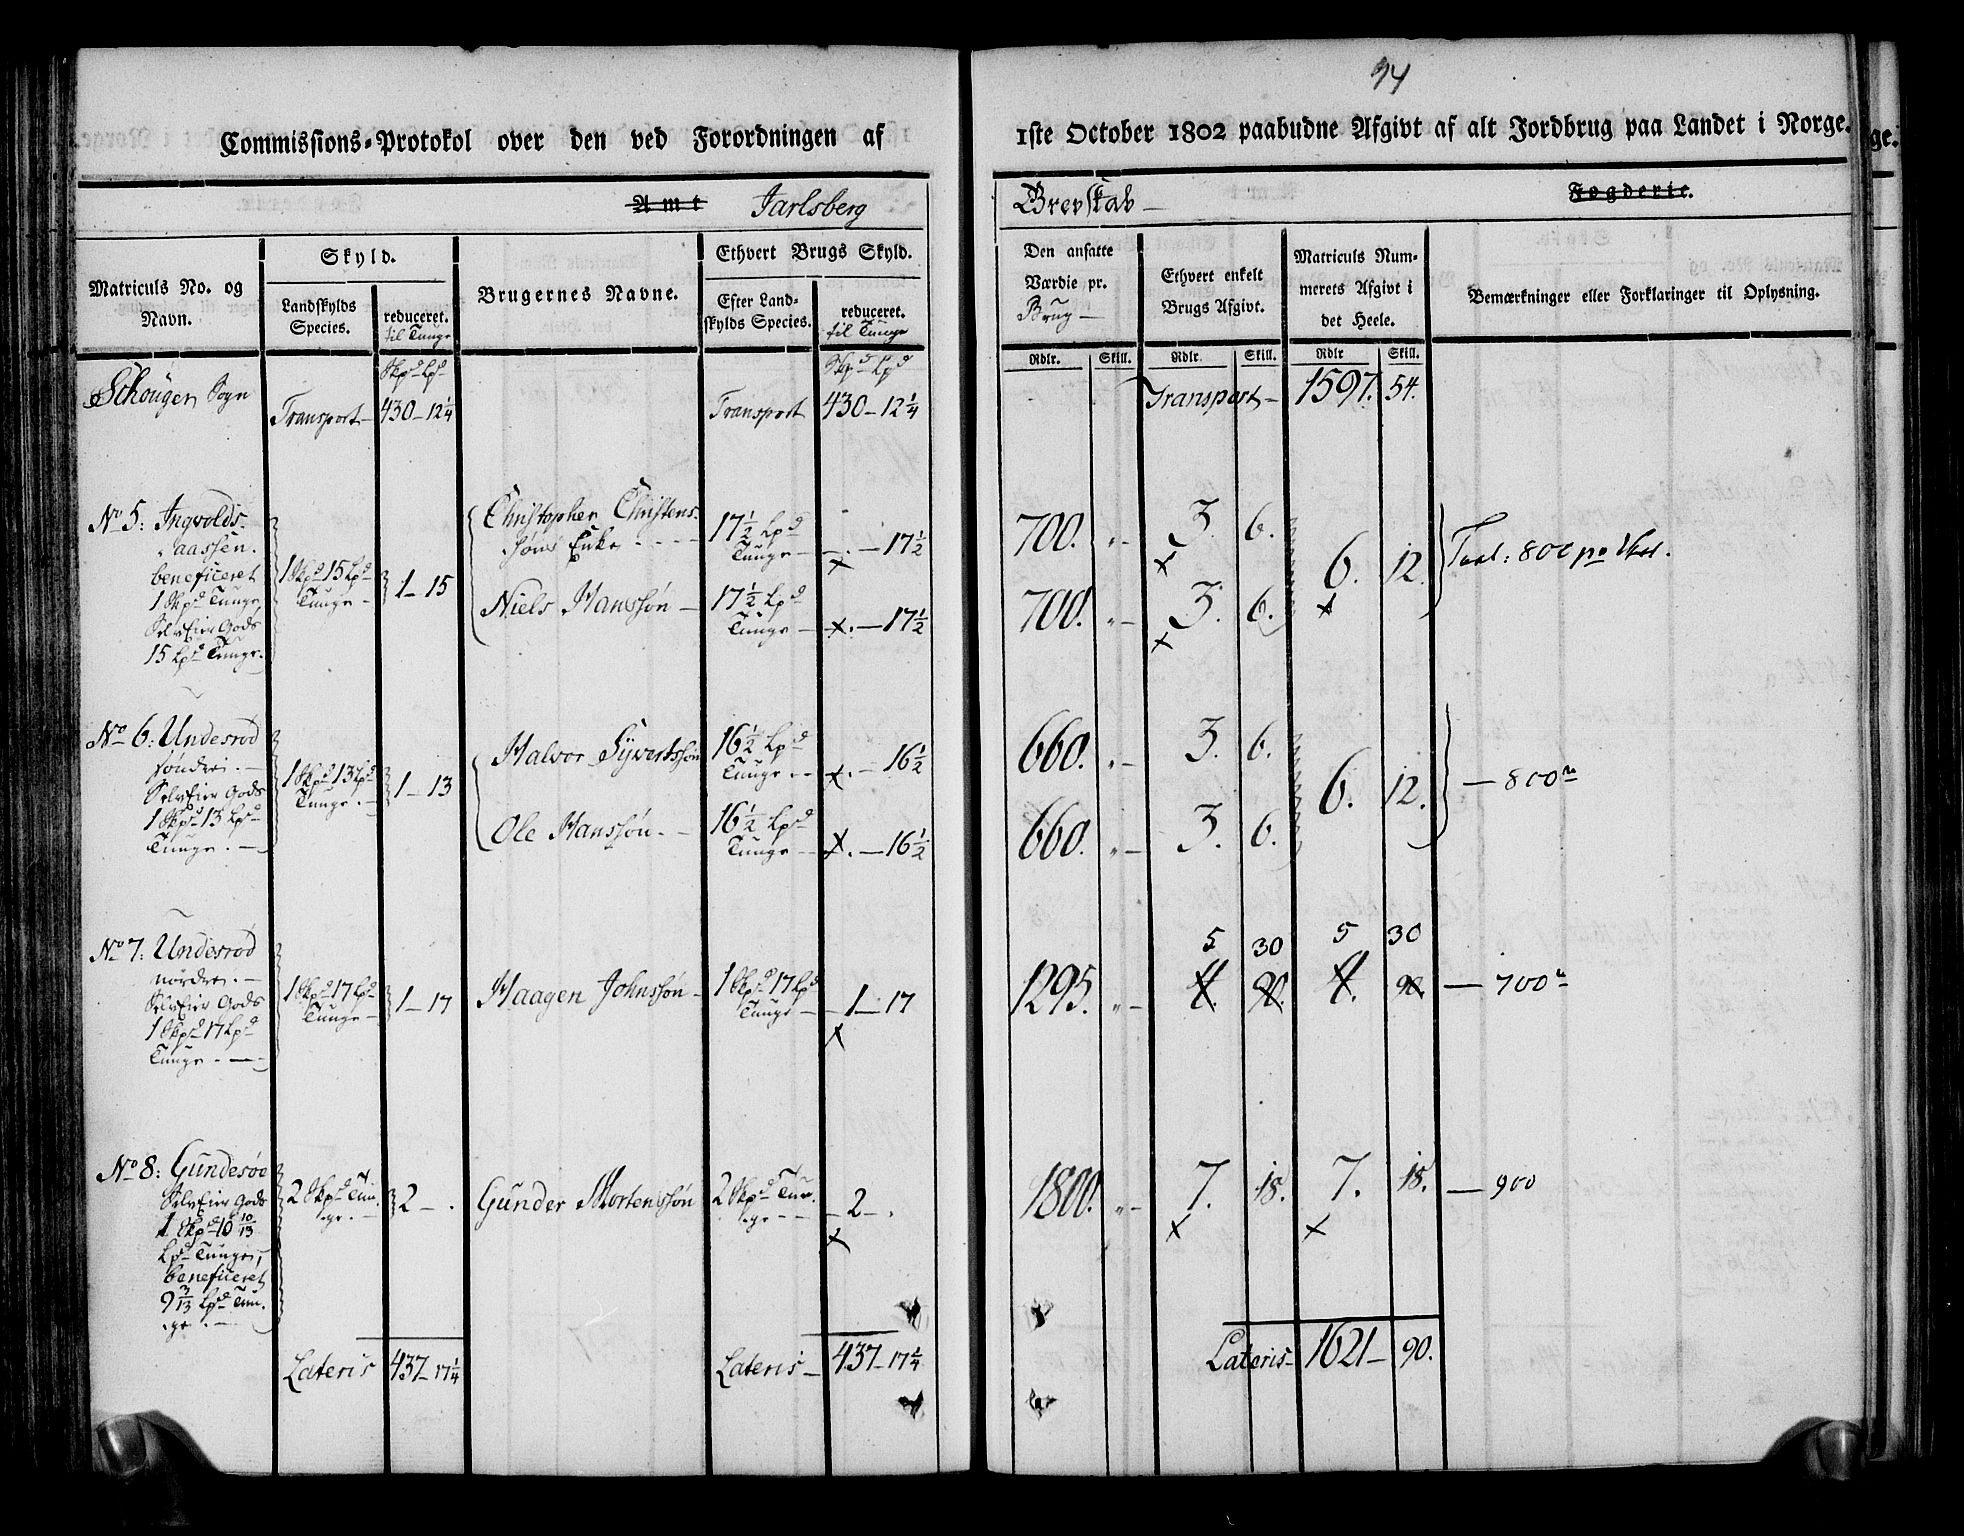 94
Commissions-Protokol over den ved Forordningen af
1ste October 1802 paabudne Afgivt af alt Jordbrug paa Landet i Norge.
Amt Jarlsberg
Grevskab Fogderie.
Matriculs No. og Navn.
Skyld.
Landskylds Species.
reduceret. til Tunge
Brugernes Navne.
Ethvert Brugs Skyld.
Efter Landskylds Species.
reduceret. til Tunge
Den ansatte Værdie pr. Brug
Ethvert enkelt Brugs Afgivt.
Matriculs Nummerets Afgivt i det Heele.
Bemærkninger eller Forklaringer til Oplysning.
Rdlr. Skill. Rdlr. Skill. Rdlr Skill.
Skpd Lpd Skpd Lpd
Schougen Sogn
Transport 430 - 12 1/4 Transport 430 - 12 1/4
Transport 1597. 54.
No 5: Ingvolds-
aassen.
beneficeret
1 Skpd Tunge,
SelvEier Gods
15 Lpd Tunge.
1 Skpd 15 Lpd
Tunge
1 - 15
Christophen Christens-
søns Enke
17 1/2 Lpd
Tunge
17 1/2
700. 3. 6.
Niels Hanssøn
17 1/2 Lpd
Tunge
17 1/2
700. 3. 6.
6. 12.
No 6: Undesrød
søndre.
SelvEier Gods
1 Skpd 13 Lpd
Tunge.
1 Skpd 13 Lpd
Tunge.
1 - 13
Halvor Syvertssøn
16 1/2 Lpd
Tunge
16 1/2
660. 3. 6.
Ole Hanssøn.
16 1/2 Lpd
Tunge
16 1/2
660. 3. 6.
6. 12.
800
No 7: Undesrød
nordre.
SelvEier Gods
1 Skpd 17 Lpd
Tunge.
1 Skpd 17 Lpd
Tunge
1 - 17
Haagen Johnssøn
1 Skpd 17 Lpd
Tunge
1 - 17
5 30 5 30
1295. 90. 90.
700
No 8: Gundesøe
SelvEier Gods
1 Skpd 10 10/13
Lpd Tunge,
beneficeret
9 3/13 Lpd Tun-
ge.
2 Skpd Tun-
ge.
2 - .
Gunder Mortenssøn
2 Skpd Tun-
ge
2 - .
1800. 7. 18. 7. 18.
900
Lateris 437 - 17 1/4 Lateris 437 - 17 1/4
Lateris 1621 - 90.